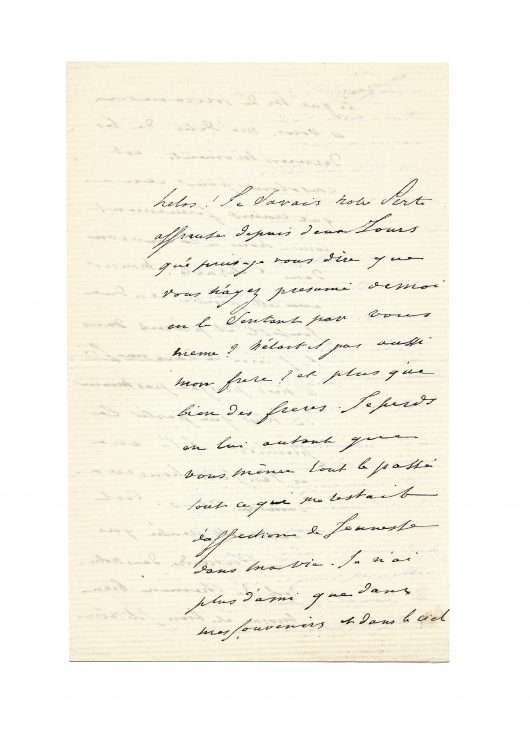 helas! Je savais notre Perte
affreuse depuis deux Jours
que puis-je vous dire que
vous n'ayez presumé de moi
en le Sentant par vous
meme? n'était il pas aussi
mon frere? et plus que
bien des freres. Je perds
en lui autant que
vous même tout le passé
tout ce qui me restait
d'affection de Jeunesse
dans ma vie. Je n'ai
plus d'ami que dans
mes Souvenirs et dans le ciel